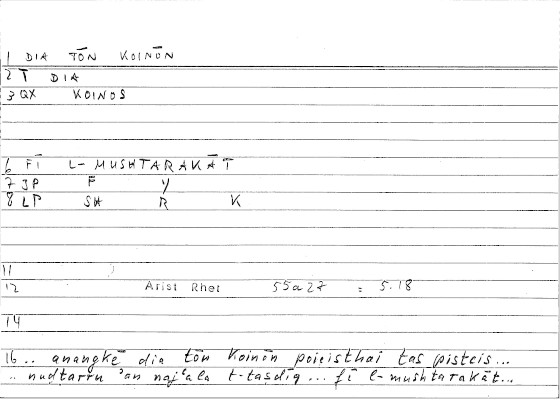 1 DIA TŌN KOINŌN
2 T DIA
3 QX KOINOS
6 FĪ L-MUSHTARAKĀT
7 JP F Y
8 LP SH R K
11
12 Arist Rhet 55a27 : 5.18
14
16 .. anangkē dia tōn koinōn poieisthai tas pisteis...
.. nudtarru 'an naj'ala t-tasdīq ... fī l-mushtarakāt...